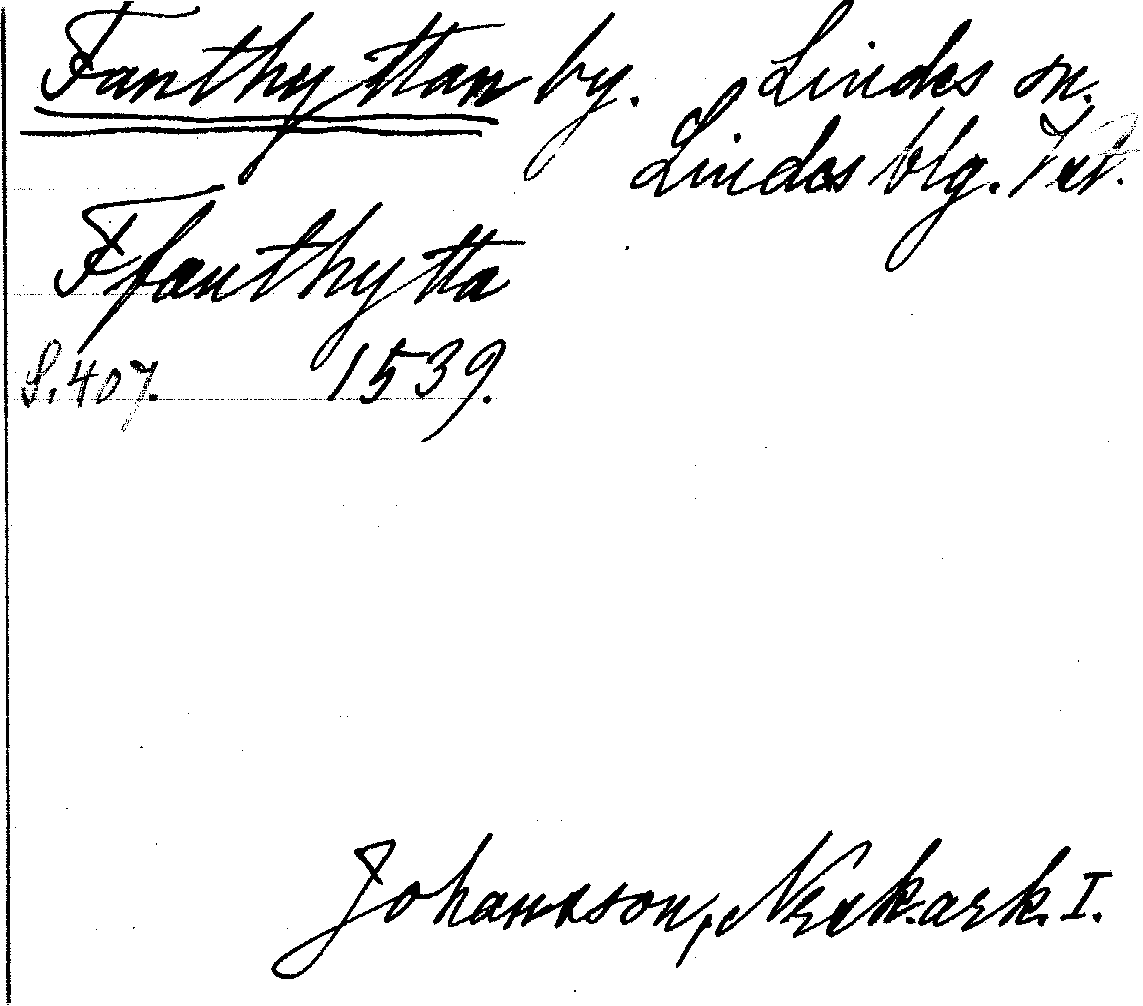 Fanthyttan by. Lindes sn.
Lindes blg. Vstl.
Ffanthytta
S. 407. 1539.
Johansson, Noraskog.ark. I.